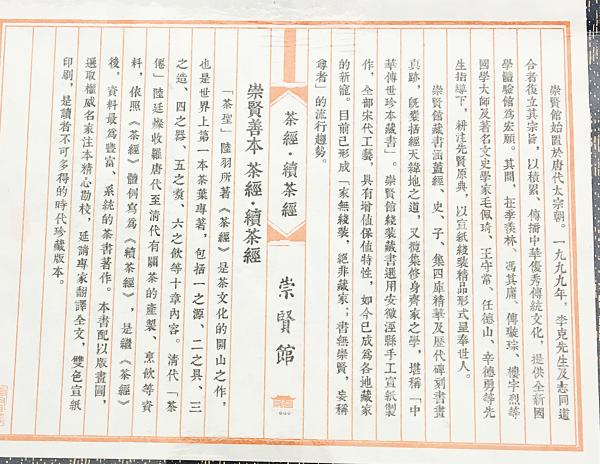 崇賢館始置於唐代太宗朝。一九九九年，李克先生及志同道
合者復立其宗旨，以積累、傳播中華優秀傳統文化，提供全新國
學體驗館爲宏願。其間，在季羨林、馮其庸、傅璇琮、樓宇烈等
國學大師及著名文史學家毛佩琦、王守常、任德山、辛德勇等先
生指導下，耕注先賢原典，以宣紙綫裝精品形式呈奉世人。
崇賢館藏書涵蓋經、史、子、集四庫精華及歷代碑刻書畫
真跡，既囊括經天緯地之道，又蒐集修身齊家之學，堪稱「中
華傳世珍本藏書」。崇賢館綫裝藏書選用安徽涇縣手工宣紙製
作，全部宋代工藝，具有增值保值特性，如今已成爲各地藏家
的新寵。目前已形成「家無綫裝，絕非藏家；書無崇賢，妄稱
尊者」的流行趨勢。
茶經·續茶經
崇賢館
崇賢善本 茶經·續茶經
「茶聖」陸羽所著《茶經》是茶文化的開山之作，
也是世界上第一本茶葉專著，包括一之源、二之具、三
之造、四之器、五之煑、六之飲等十章內容。清代「茶
倦」陸廷燦收羅唐代至清代有關茶的產製、烹飲等資
料，依照《茶經》體例寫爲《續茶經》，是繼《茶經》
後，資料最爲豐富、系統的茶書著作。本書配以版畫圖，
選取權威名家注本精心勘校，延請專家翻譯全文，雙色宣紙
印刷，是讀者不可多得的時代珍藏版本。